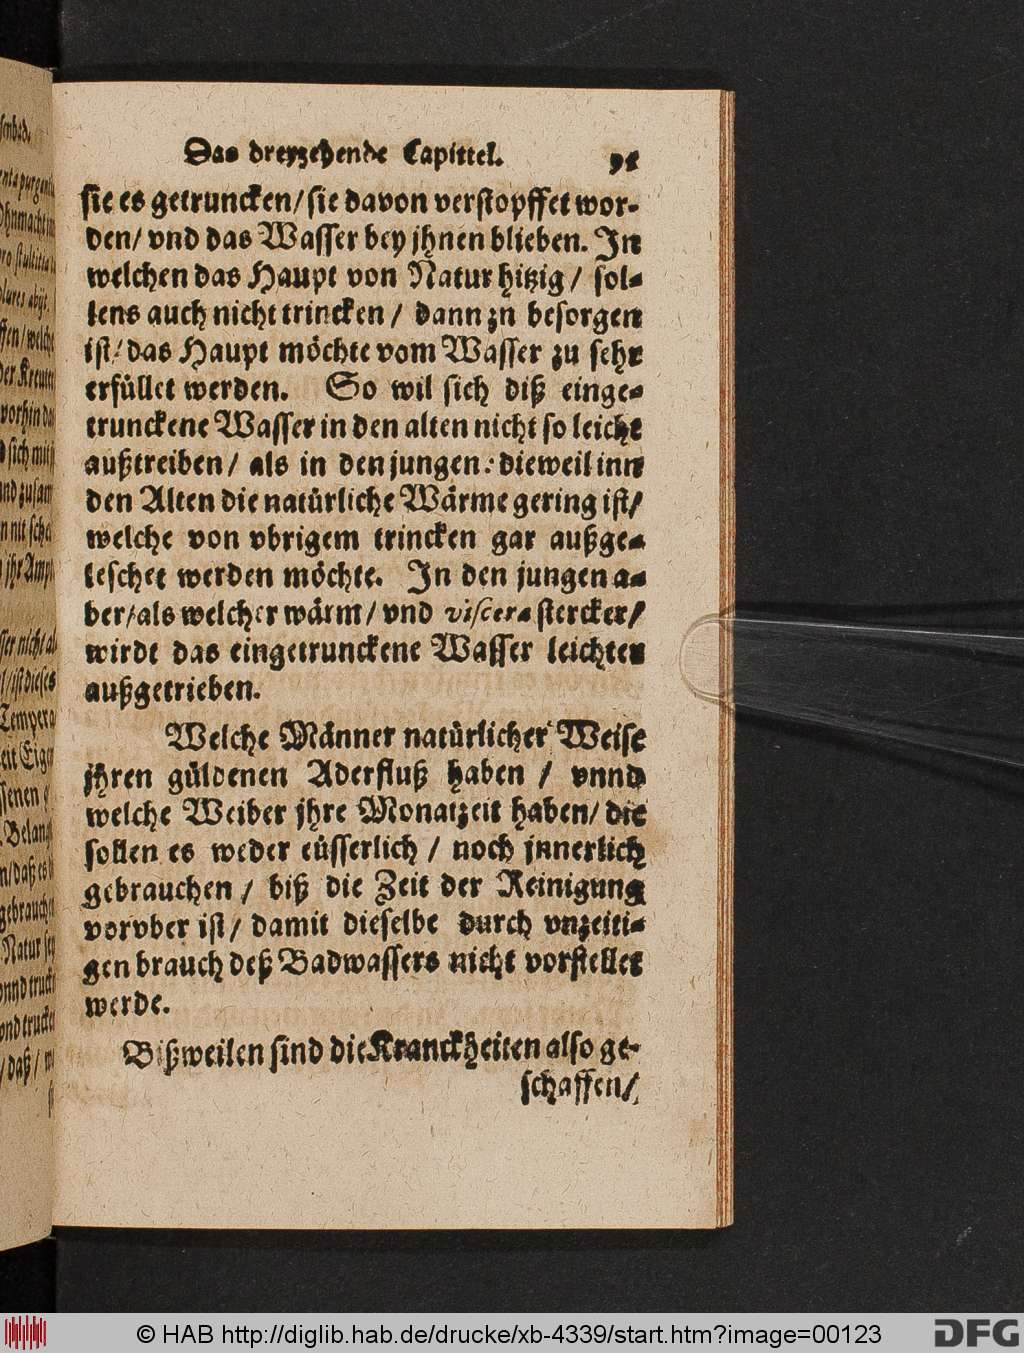 Das dreyzehende Capittel. 95
sie es getruncken/ sie davon verstopffet wor-
den/ vnd das Wasser bey jhnen blieben. In
welchen das Haupt von Natur hitzig/ sol-
lens auch nicht trincken/ dann zn besorgen
ist/ das Haupt möchte vom Wasser zu sehr
erfüllet werden. So wil sich diß einge-
trunckene Wasser in den alten nicht so leicht
außtreiben/ als in den jungen: dieweil inn
den Alten die natürliche Wärme gering ist/
welche von vbrigem trincken gar außge-
leschet werden möchte. In den jungen a-
ber/ als welcher wärm/ vnd viscera stercker/
wirdt das eingetrunckene Wasser leichter
außgetrieben.
Welche Männer natürlicher Weise
jhren güldenen Aderfluß haben / vnnd
welche Weiber jhre Monatzeit haben/ die
sollen es weder eüsserlich / noch jnnerlich
gebrauchen / biß die Zeit der Reinigung
vorvber ist/ damit dieselbe durch vnzeiti-
gen brauch deß Badwassers nicht vorstellet
werde.
Bißweilen sind die Kranckheiten also ge-
schaffen/
© HAB http://diglib.hab.de/drucke/xb-4339/start.htm?image=00123
DFG